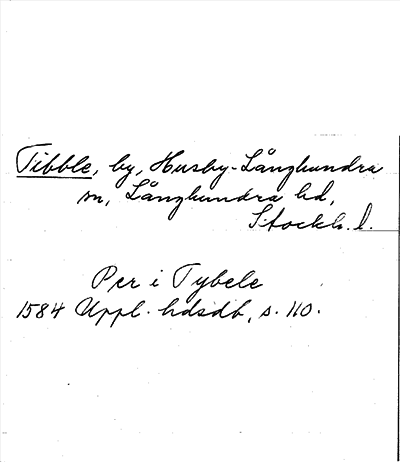 Tibble, by, Husby-Långhundra
sn, Långhundra hd,
Stockh. l.
Per i Tybele
1584 Uppl. hdsdb, s. 110.